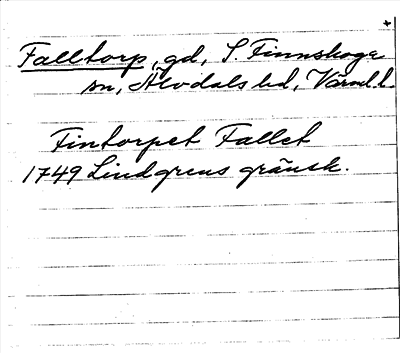 Falltorp, gd, S. Finnskoga
sn, Älvdals hd, Värml. l.
Fintorpet Fallet
1749 Lindgrens gränsk.